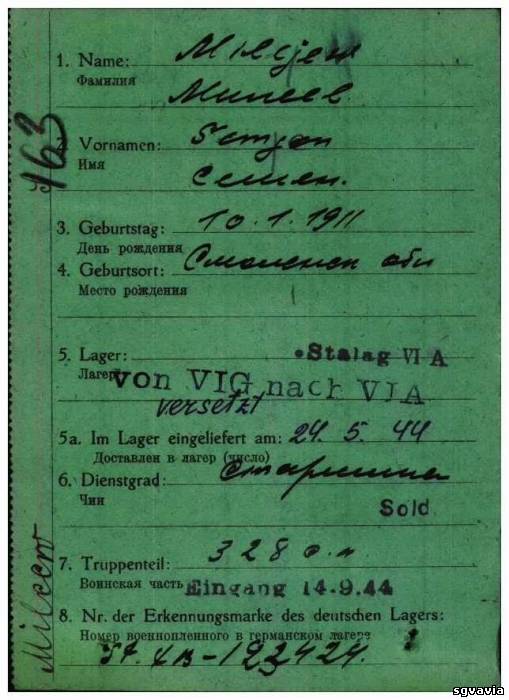 163
1. Name: Milejew
Фамилия
Милеев.
2. Vornamen: Semjon
Имя
Семен.
3. Geburtstag: 10.1.1911
День рождения
4. Geburtsort: Смоленск обл
Место рождения
5. Lager: Stalag VI A
Лагерь
von VI G nach VI A
versetzt
5a. Im Lager eingeliefert am: 24. 5. 44
Доставлен в лагер (число)
6. Dienstgrad: Старшина
Чин
Sold.
7. Truppenteil: 328 с.п.
Воинская часть Eingang 14.9.44
8. Nr. der Erkennungsmarke des deutschen Lagers:
Номер военнопленного в германском лагере
St. XB-123424.
sgvavia